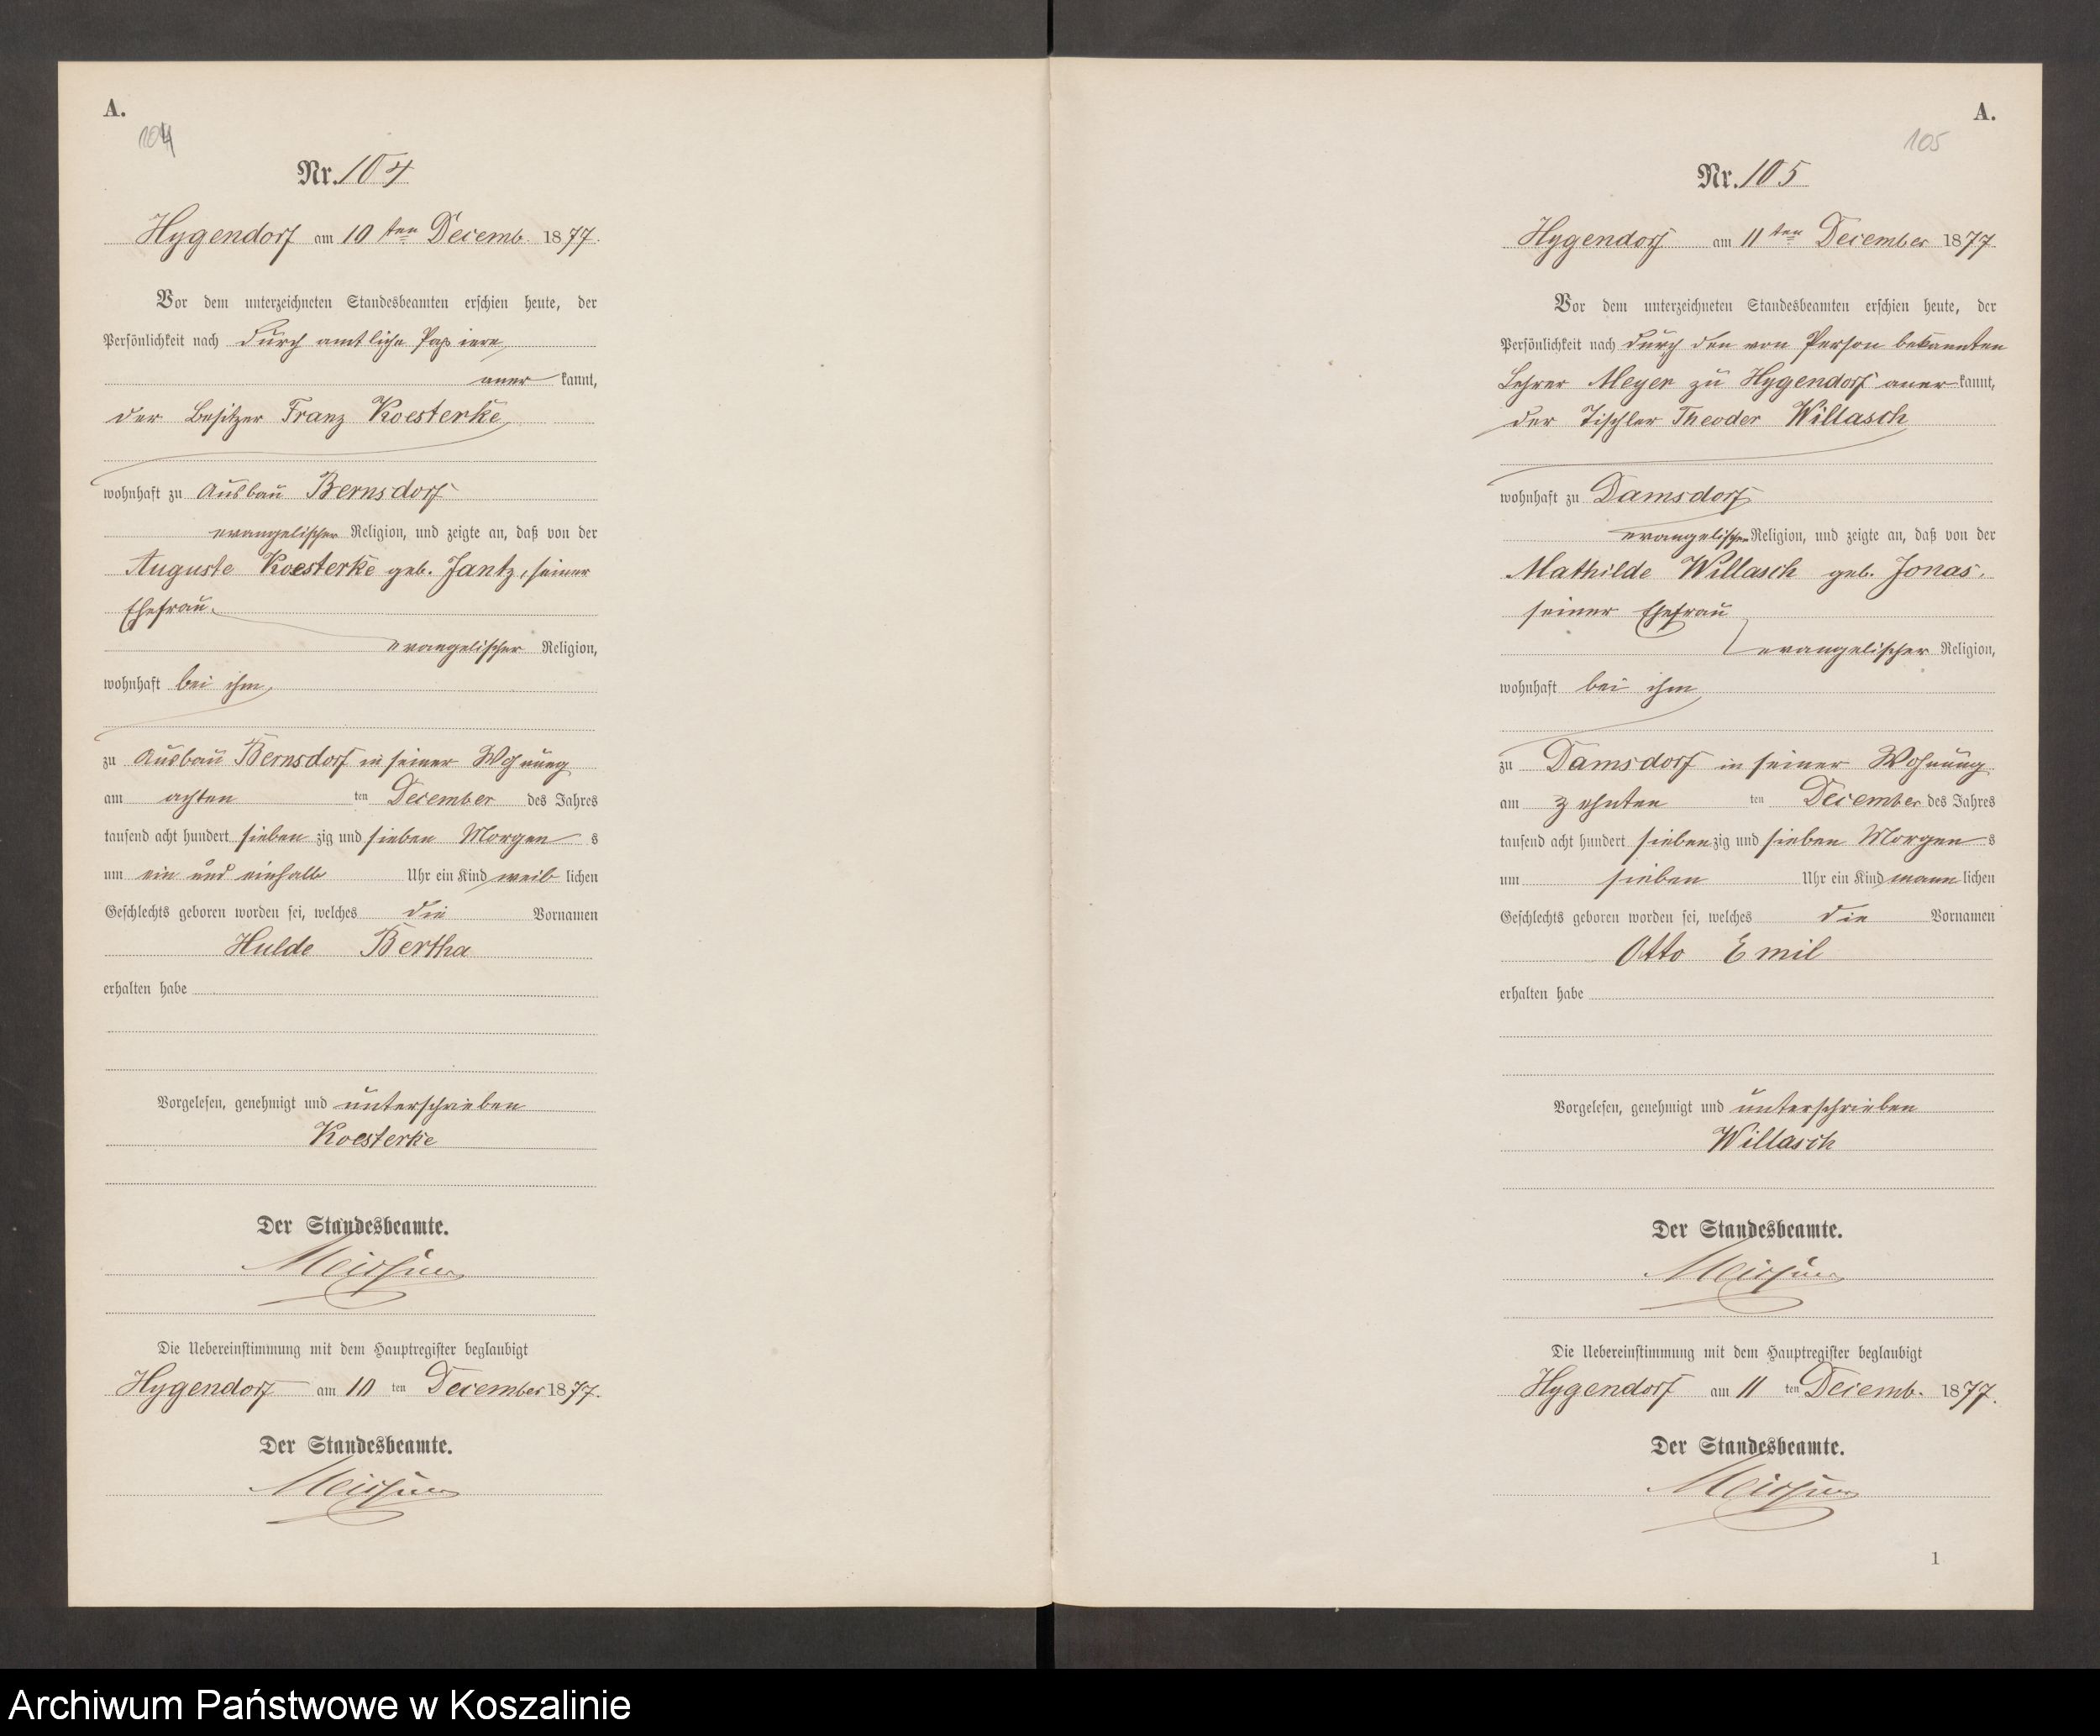 A.
104
Nr. 104
Hygendorf am 10 ten Decemb. 1877.
Vor dem unterzeichneten Standesbeamten erschien heute, der
Persönlichkeit nach durch amtliche Papiere
aner kannt,
der Besitzer Franz Koesterke
wohnhaft zu Ausbau Bernsdorf
evangelischer Religion, und zeigte an, daß von der
Auguste Koesterke geb. Jantz, seiner
Ehefrau
evangelischer Religion,
wohnhaft bei ihm
zu Ausbau Bernsdorf in seiner Wohnung
am achten ten December des Jahres
tausend acht hundert sieben zig und sieben Morgen s
um ein und einhalb Uhr ein Kind weib lichen
Geschlechts geboren worden sei, welches die Vornamen
Hulde Bertha
erhalten habe
Vorgelesen, genehmigt und unterschrieben
Koesterke
Der Standesbeamte.
Die Uebereinstimmung mit dem Hauptregister beglaubigt
Hygendorf am 10 ten December 1877.
Der Standesbeamte.
A.
105
Nr. 105
Hygendorf am 11 ten December 1877.
Vor dem unterzeichneten Standesbeamten erschien heute, der
Persönlichkeit nach durch den von Person bekannten
Lehrer Meyer zu Hygendorf aner kannt,
der Tischler Theoder Willasch
wohnhaft zu Damsdorf
evangelischen Religion, und zeigte an, daß von der
Mathilde Willasch geb. Jonas.
seiner Ehefrau
evangelischer Religion,
wohnhaft bei ihm
zu Damsdorf in seiner Wohnung
am zehnten ten December des Jahres
tausend acht hundert sieben zig und sieben Morgen s
um sieben Uhr ein Kind mann lichen
Geschlechts geboren worden sei, welches die Vornamen
Otto Emil
erhalten habe
Vorgelesen, genehmigt und unterschrieben
Willasch
Der Standesbeamte.
Die Uebereinstimmung mit dem Hauptregister beglaubigt
Hygendorf am 11 ten Decemb. 1877.
Der Standesbeamte.
1
Archiwum Państwowe w Koszalinie